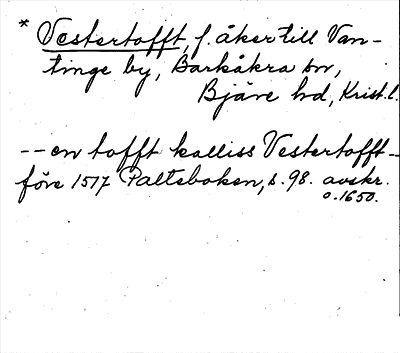 * Vestertofft, f. åker till Van-
tinge by, Barkåkra sn,
Bjäre hd, Krist. l.
-- en tofft kalliss Vestertofft --
före 1517 Palteboken, s. 98. avskr.
o. 1650.